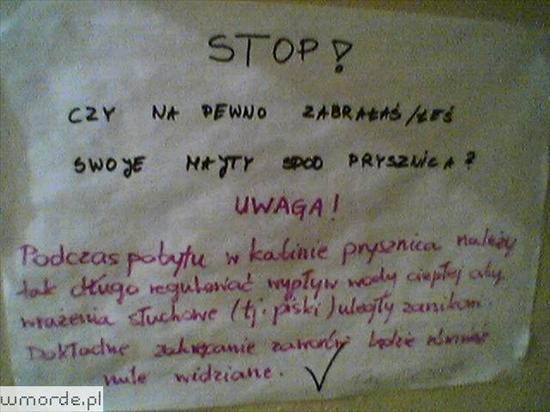 STOP!
CZY NA PEWNO ZABRAŁAŚ/ŁEŚ
SWOJE MAJTY SPOD PRYSZNICA?
UWAGA!
Podczas pobytu w kabinie prysznica należy
tak długo regulować wypływ wody ciepłej aby
wrażenia słuchowe (tj. piski) uległy zanikom.
Dokładne zakręcanie zaworów będzie również
mile widziane.
wmorde.pl